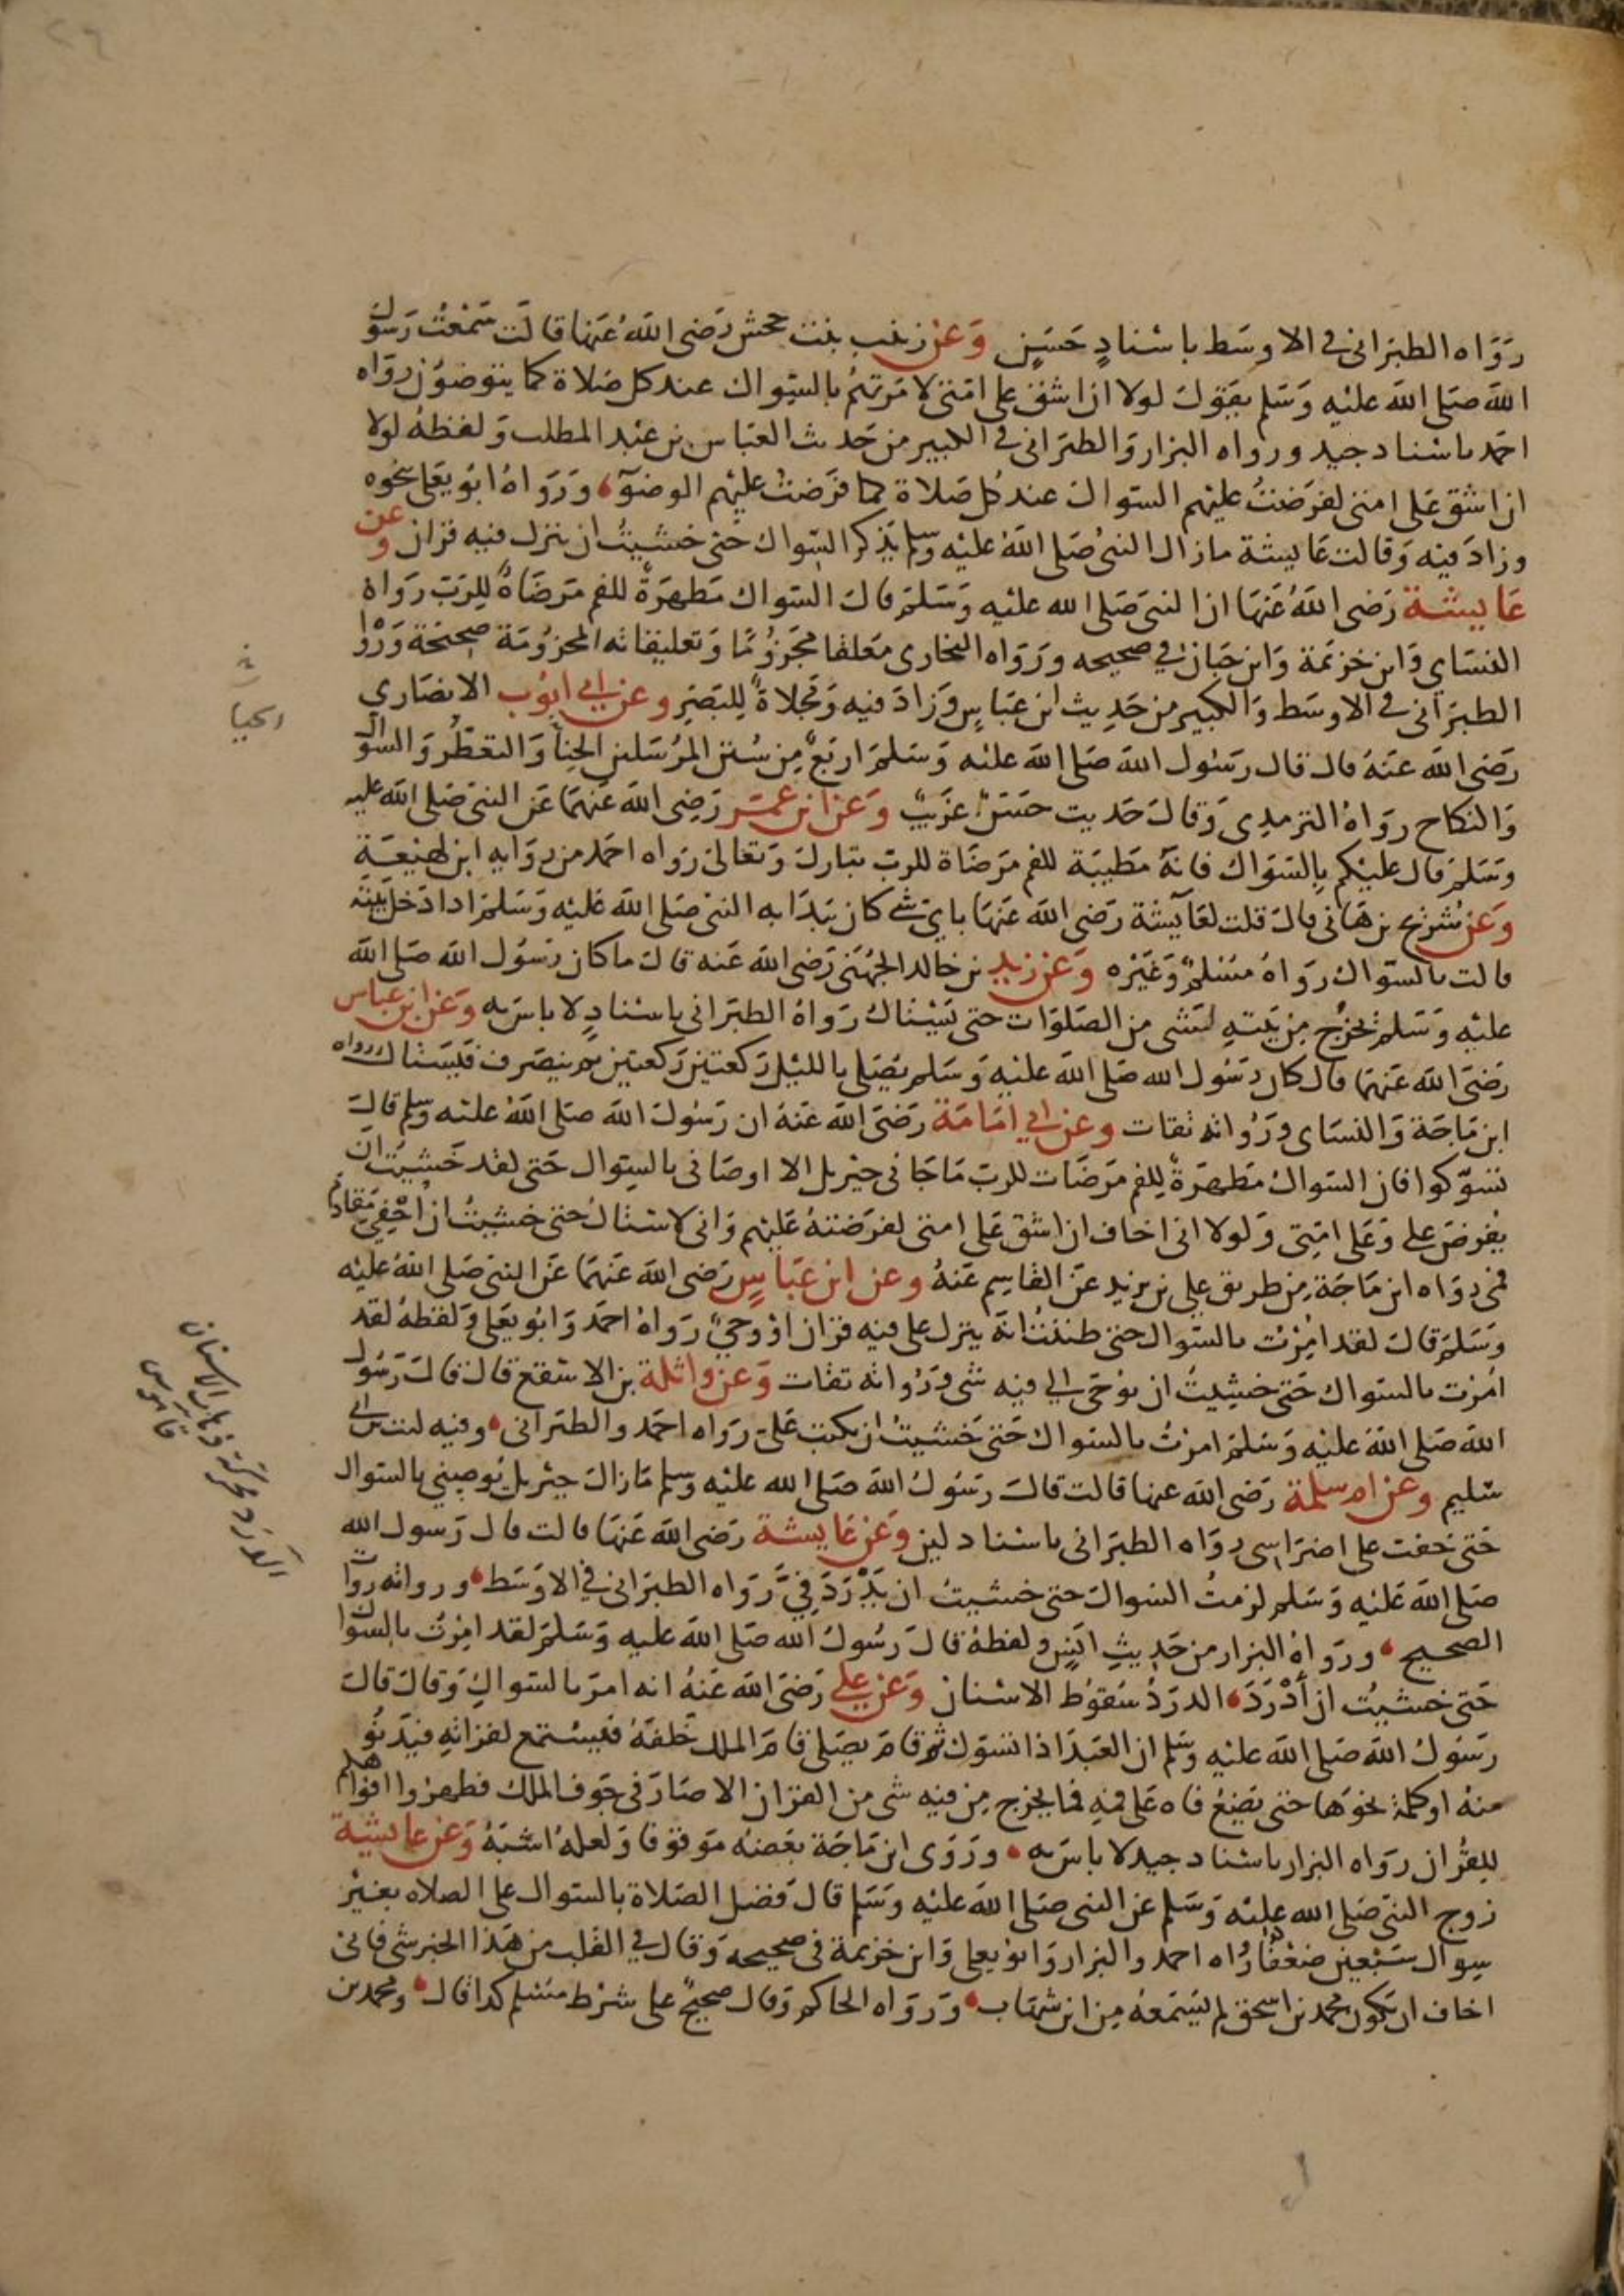 ٢٦
رَوَاه الطبَرانى فى الاوسَط باسْنادٍ حَسَنٍ وَعَن زينب بنت جحش رَضى اللهُ عَنهَا قالَت سَمْعتُ رَسُول
الله صَلى الله عَليْه وَسَلم يَقوُل لولا ان اشق على امتى لامَرتهُم بالسّواك عند كل صَلاة كما يتوضؤن رواه
احمَد باسْناد جيد ورواه البزار وَالطبَرانى فى الكبير من حَديث العَبَاس بن عَبْد المطلب وَلفظهُ لولا
ان اشق عَلى امتى لفرَضتُ عليْهم السواك عند كل صَلاة كما فرَضتُ عليْهم الوضوٓء وَرَوَاهُ ابوُ يَعلى بنحْوه
وزادَ فيه وَقالت عَايشة مازال النبىُ صَلى اللهُ عليْه وسلم يَذكر السّواك حَتى خشيتُ ان ينزل فيه قران وَعن
عَايشة رَضى اللهُ عَنهَا ان النبىَ صَلى الله عليْه وَسَلمَ قال السّواك مَطهرَةٌ للفم مَرضَاةٌ للِرَبّ رَواهُ
النسَاي وَابن خزيمَة وَابن حبَان فى صحيحه ورَوَاه البخارى مَعلقا مجَزوُمًا وَتعليقاته المجزوُمَة صَحِيحَة وَرَوَا
الطبَرَانى فى الاوسَط وَالكبير من حَدِيث ابن عَبَاسٍ وَزادَ فيه وَمَجلاةٌ للِبَصَرِ وعَن ابي ايوُب الانصَاري
رَضى الله عَنهُ قال قال رَسُول الله صَلى الله عليْه وَسَلمَ اربَعٌ مِن سُنن المرُسَلين الحِنا وَالتعَطُر وَالسوَاك
وَالنكاح رَوَاهُ الترمدِى وَقالَ حَديث حَسَنٌ غرَيبٌ وَعَن ابن عُمَر رَضِى الله عَنهُمَا عَن النبىّ صَلى الله عليه
وَسَلمَ قال عليْكم بِالسّوَاك فانهُ مَطيبَة للفم مَرضَاة للربّ تبارك وَتعَالى رَوَاه احَمد من روَايه ابن لهيعَةِ
وَعَن شُرَيح بن هَانى قال قلت لعَآيشة رَضى الله عَنهَا باىّ شئ كان يَبدَا به النبى صَلى الله عَليْه وَسَلمَ اذا دَخل بَيْتهُ
قالت بالسّوَاك رَوَاهُ مسْلمٌ وَغَيْره وَعَن زيدِ بن خالد الجهُنىّ رَضى الله عَنه قالَ ماكان رَسُول الله صَلى الله
عليْه وَسَلم يَخرُج مِن بَيتهِ لشى مِن الصّلوَات حتى يَسْتاك رَوَاهُ الطبَرانى باسْنادٍ لا باسَ به وَعَن ابن عباس
رَضىَ الله عَنهمَا قال كان رَسُول الله صَلى الله عليْه وَسَلم يُصَلى بالليْل رَكعتين رَكعتين ثم ينصَرف فيَستاك رواه
ابن مَاجَة وَالنسَاى ورُوَاته ثقات وعَن ابي امَامَة رَضىَ الله عَنهُ ان رَسُولَ الله صَلى اللهُ عليْه وسلم قالَ
تسَوّكوا فان السّواك مَطهرَةٌ للِفم مَرضَات للربّ مَا جَانى جبْريل الا اوصَانى بالسِواك حَتى لقد خَشيتُ ان
يُفرضَ على وَعَلى امَتِى وَلولا انى اخاف ان اشق عَلى امتى لفرَضتهُ عَليْهم وَانى لاسْتاكُ حتى خشيتُ ان اُحْفِيَ مَقادِمَ
فمي رَوَاه ابن مَاجَة مِن طريق علي بن يزيد عَن القاسِم عَنهُ وعن ابن عَبَاسٍ رَضى الله عَنهُمَا عَن النبى صَلى اللهُ عليْه
وَسَلمَ قالَ لقد امُرْت بالسّوَاك حتى ظننتُ انهُ ينزل على فيه قران اوْ وحيٌ رَوَاهُ احَمد وَابوُ يَعلى وَلفظهُ لقد
امُرت بالسّواك حَتى خشيتُ ان يوُحَى الي فيْه شى وَرُوَاته ثقات وَعَن واثلة بن الاسَقع قال قالَ رَسُول
الله صَلى اللهُ عليْه وَسَلمَ امرتُ بالسّواك حَتى خَشيت ان يكتبَ عَلىّ رَوَاه احَمد والطبَرانى وفيه ليث بن ابي
سُليم وعَن ام سلمة رَضى الله عنها قالت قالَ رَسُولُ الله صَلى الله عليْه وسلم مَا زالَ جبْريل يُوصِيني بالسّواك
حَتى خفت على اضرَاسِى رَوَاه الطبَرانى باسْناد لين وَعَن عَايشة رَضى الله عَنهَا قالت قال رَسول الله
صَلى الله عَليْه وَسَلم لزمتُ السّواكَ حتى خشيتُ ان يَدْرَدَ فيَّ رَوَاه الطبَرانى فى الاوَسَط ورواته رواة
الصحيح ورَوَاهُ البزار من حَدِيثِ انَسٍ ولفظهُ قالَ رَسُولُ الله صَلى الله عليه وَسَلمَ لقد امِرْت بالسوَاك
حَتى خشيتُ ان أدْرَدَ الدرَدُ سُقوُط الاسْنان وَعَن علي رَضىَ الله عَنهُ انه امرَ بالسّواكِ وَقال قالَ
رَسُولُ الله صَلى الله عليْه وسَلم ان العَبدَ اذا تسَوّك ثم قامَ يُصَلى قامَ الملك خَلفَهُ فيَستمع لقراتهِ فيَدنوُ
منهُ او كلمَةً نحوَهَا حتى يَضَعَ فاه عَلى فيهِ فمايخرج مِن فيه شى من القران الا صَارَ فى جَوف الملك فطهروا افوَاهكم
للِقُران رَوَاه البزار باسْناد جيد لا باسَ به ورَوَى ابن مَاجَة بعَضهُ مَوقوفا وَلعلهُ اشبَهُ وَعَن عايشة
زوج النبىّ صَلى الله عليْه وَسَلم عن النبى صَلى الله عَليْه وَسَلم قالَ فضل الصّلاة بالسّواك على الصلاه بغيْر
سِواك سَبْعين ضعْفًا رَوَاه احمد والبزار وَابوُ يَعلى وَابن خزيمة فى صحيحه وَقال في القلب من هَذا الخبر شى فانى
اخاف ان يكون محمد بن اسحق لم يَسَمعَهُ مِن ابن شهَاب وَرَوَاه الحاكم وَقال صحيحٌ على شرْط مسْلم كذا قال ومحمد بن
الحيا
الدَرَد محركة ذهاب الاسنان
قاموس